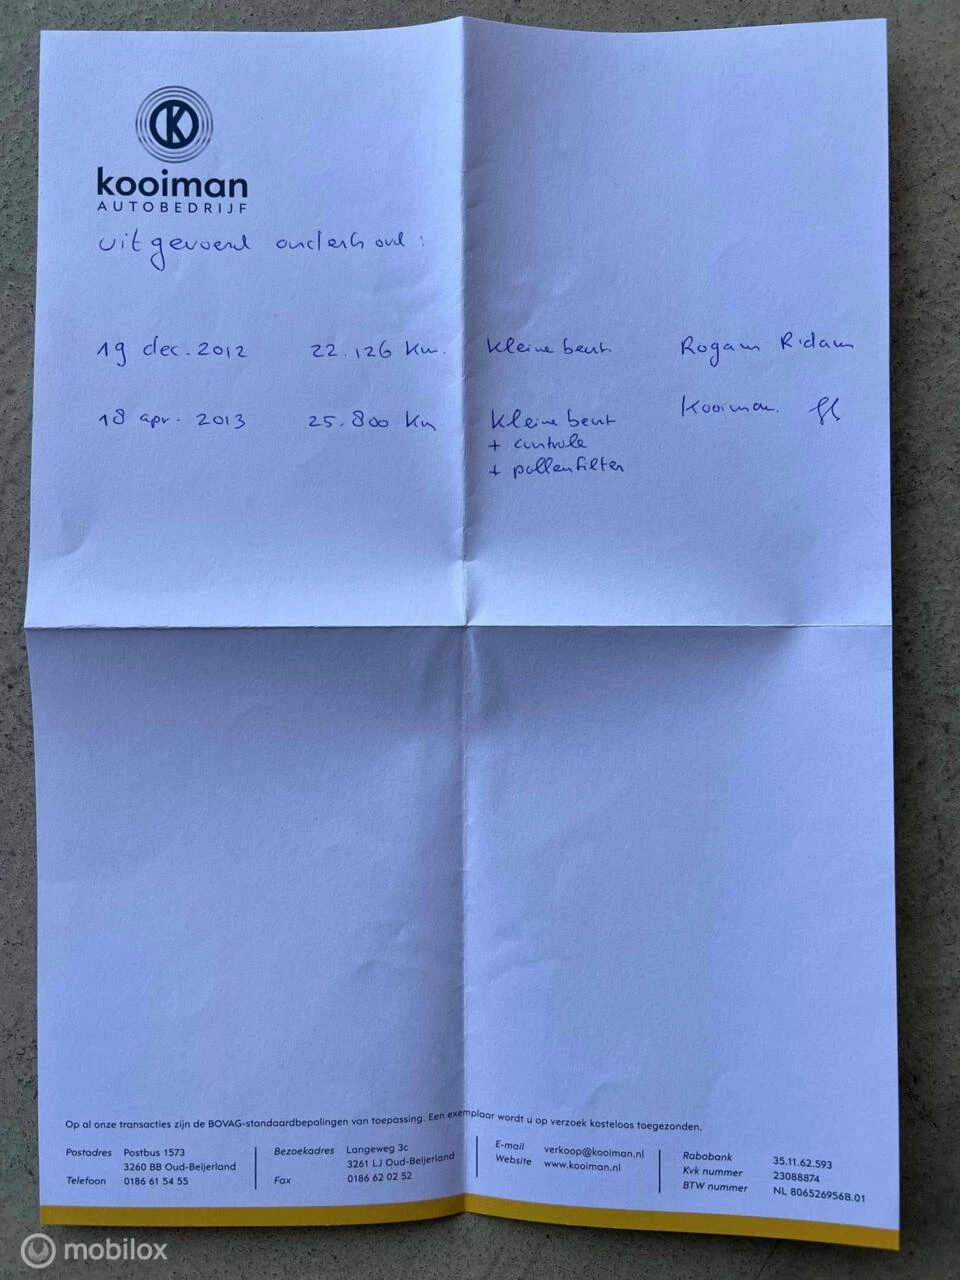 K
kooiman
AUTOBEDRIJF
uitgevoerd onderhoud:
19 dec. 2012 22.126 Km. Kleine beurt Rogam R.dam
18 apr. 2013 25.800 Km Kleine beurt Kooiman.
+ controle
+ pollenfilter
Op al onze transacties zijn de BOVAG-standaardbepalingen van toepassing. Een exemplaar wordt u op verzoek kosteloos toegezonden.
Postadres Postbus 1573
3260 BB Oud-Beijerland
Telefoon 0186 61 54 55
Bezoekadres Langeweg 3c
3261 LJ Oud-Beijerland
Fax 0186 62 02 52
E-mail verkoop@kooiman.nl
Website www.kooiman.nl
Rabobank 35.11.62.593
Kvk nummer 23088874
BTW nummer NL 806526956B.01
mobilox